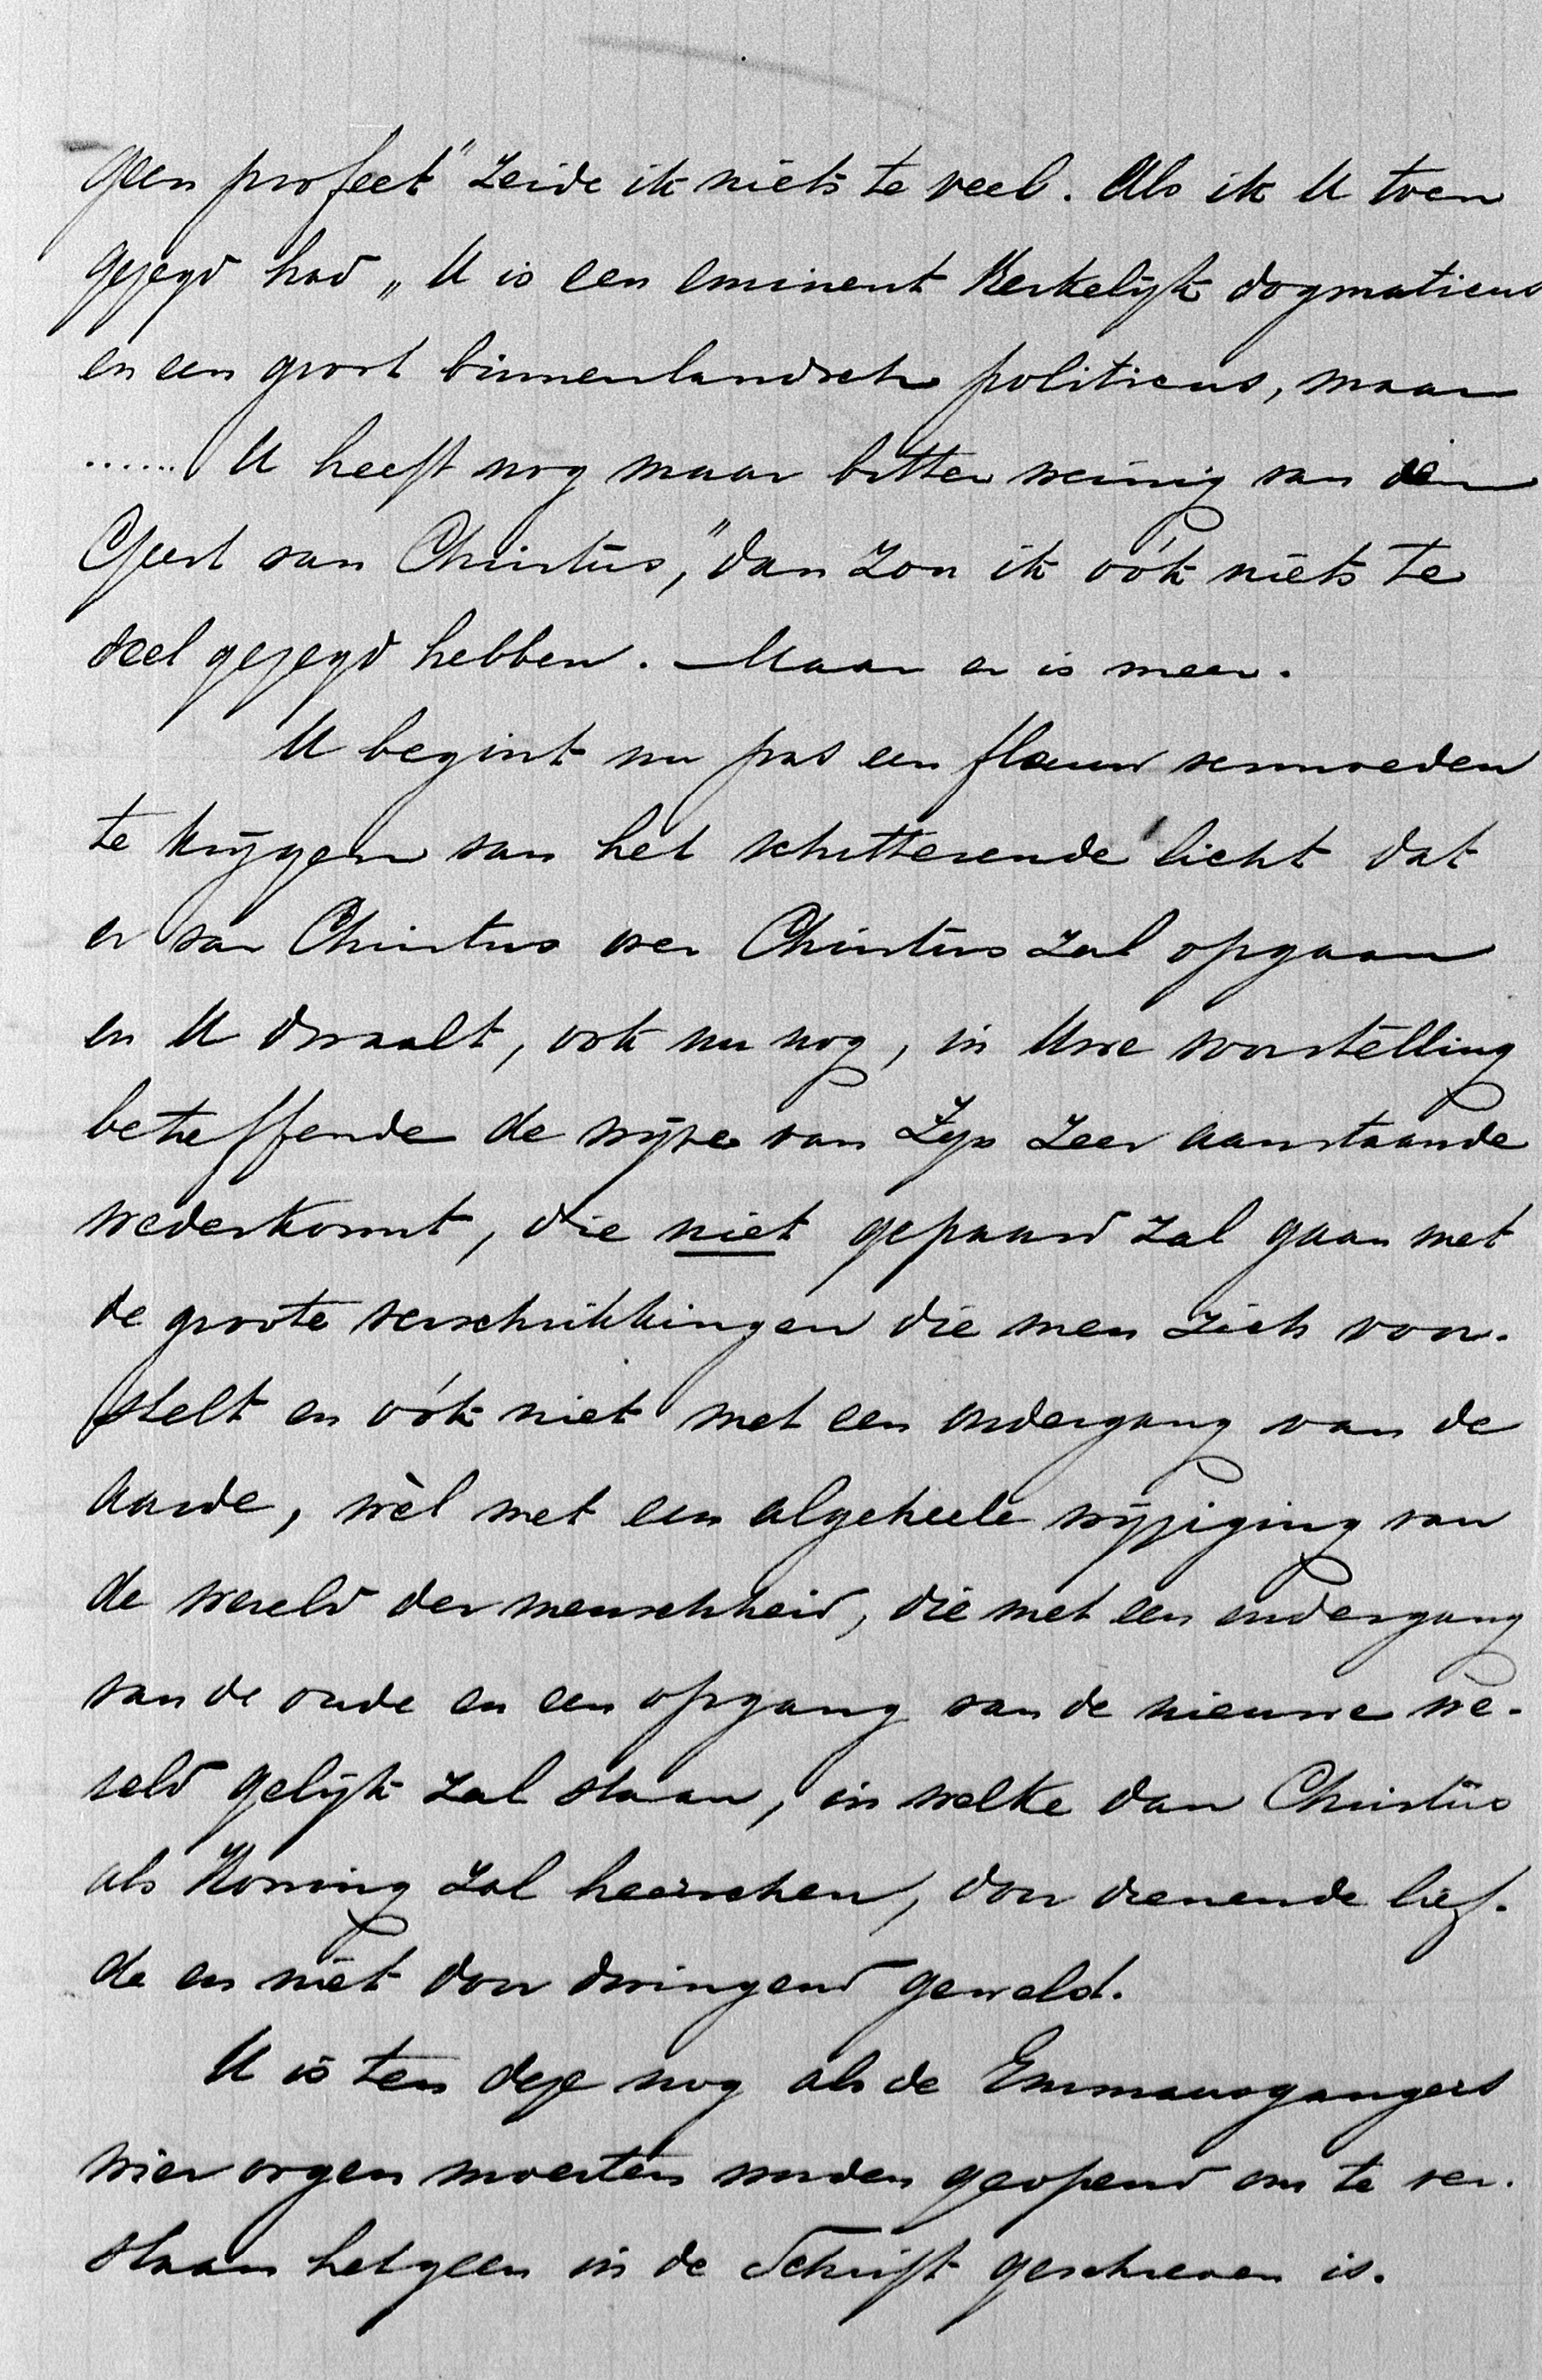 geen profeet" zeide ik niets te veel. Als ik U toen
gezegd had „U is een eminent Kerkelijk dogmaticus
en een groot binnenlandsch politicus, maar
...... U heeft nog maar bitter weinig van den
Geest van Christus," dan zou ik oók niets te
veel gezegd hebben. — Maar er is meer.
U begint nu pas een flauw vermoeden
te krijgen van het schitterende licht dat
er van Christus over Christus zal opgaan
en U dwaalt, ook nu nog, in Uwe voorstelling
betreffende de wijze van Zijn zeer aanstaande
wederkomst, die niet gepaard zal gaan met
de groote verschrikkingen die men zich voor-
stelt en oók niet met een ondergang van de
aarde, wèl met een algeheele wijziging van
de wereld der menschheid, die met een ondergang
van de oude en een opgang van de nieuwe we-
reld gelijk zal staan, in welke dan Christus
als Koning zal heerschen, door dienende lief-
de en niet door dwingend geweld.
U is ten deze nog als de Emmausgangers
wier oogen moesten worden geopend om te ver-
staan hetgeen in de Schrift geschreven is.